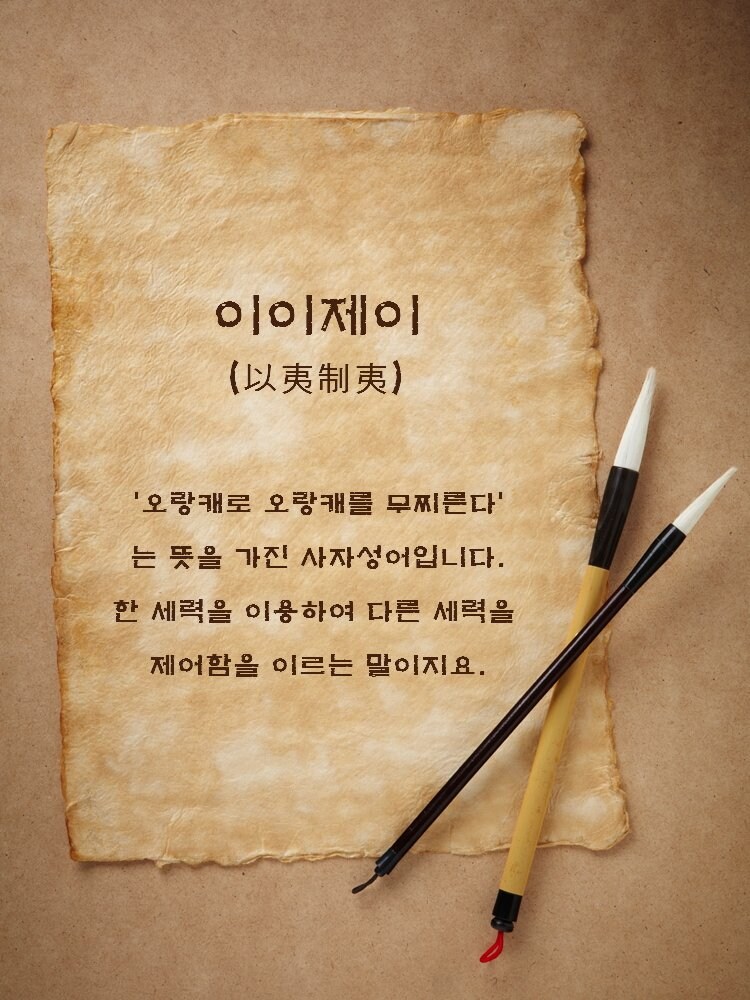 이이제이
(以夷制夷)
'오랑캐로 오랑캐를 무찌른다'
는 뜻을 가진 사자성어입니다.
한 세력을 이용하여 다른 세력을
제어함을 이르는 말이지요.